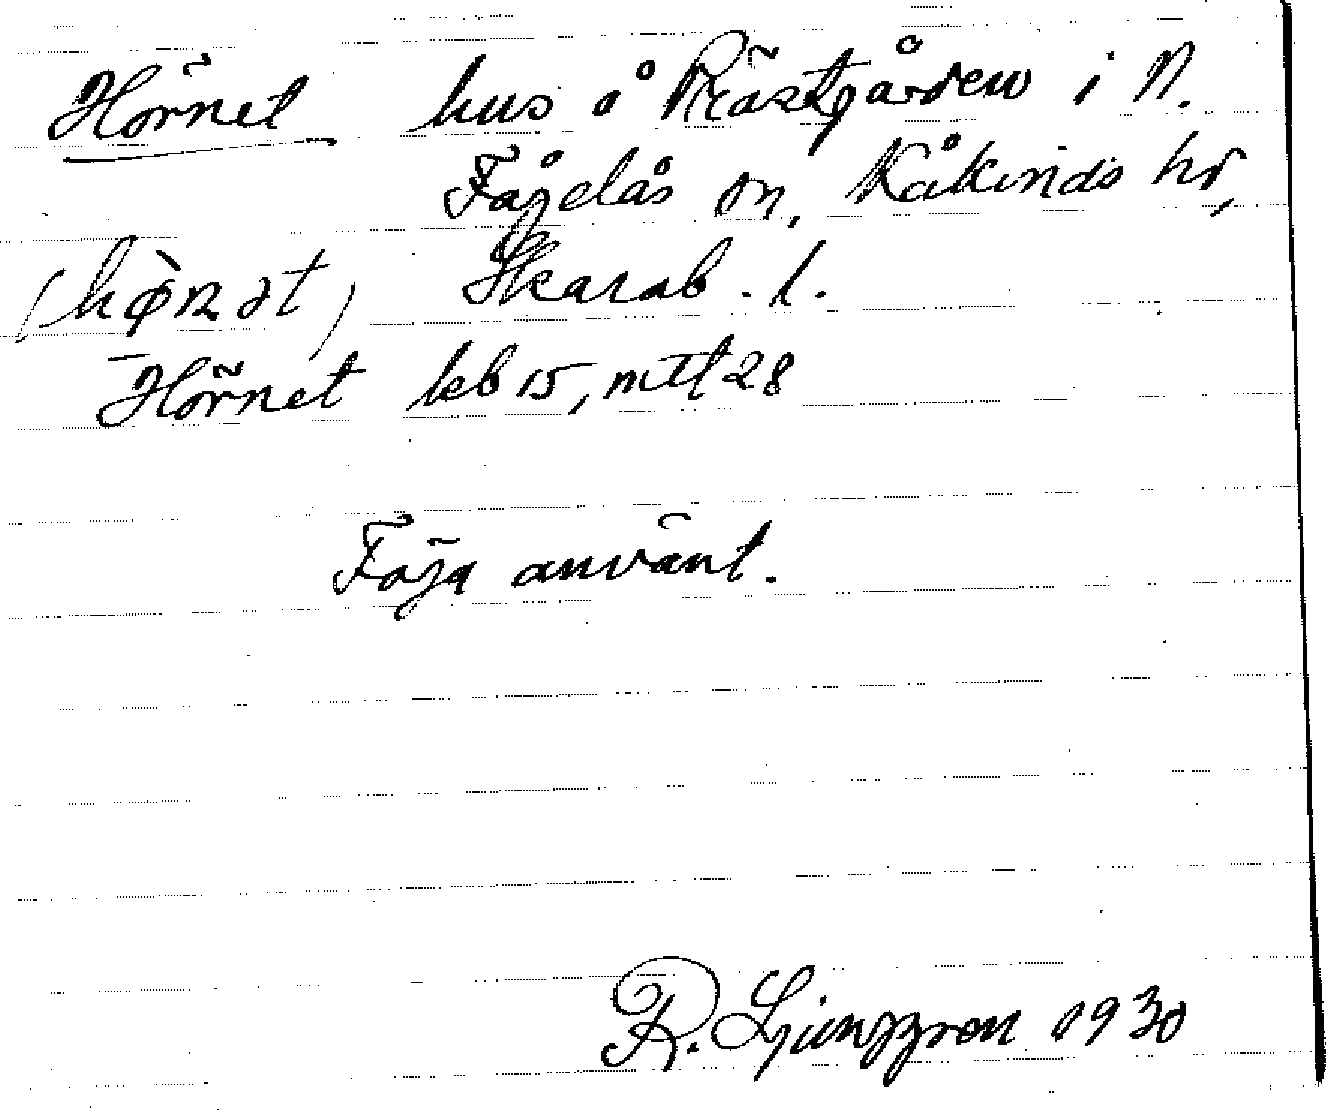 Hörnet hus å Prästgården i N.
Fågelås sn, Kåkinds hd,
(hø̀ꞃət) Skarab. l.
Hörnet leb 15, mtl 28
Föga använt.
R. Ljunggren 1930